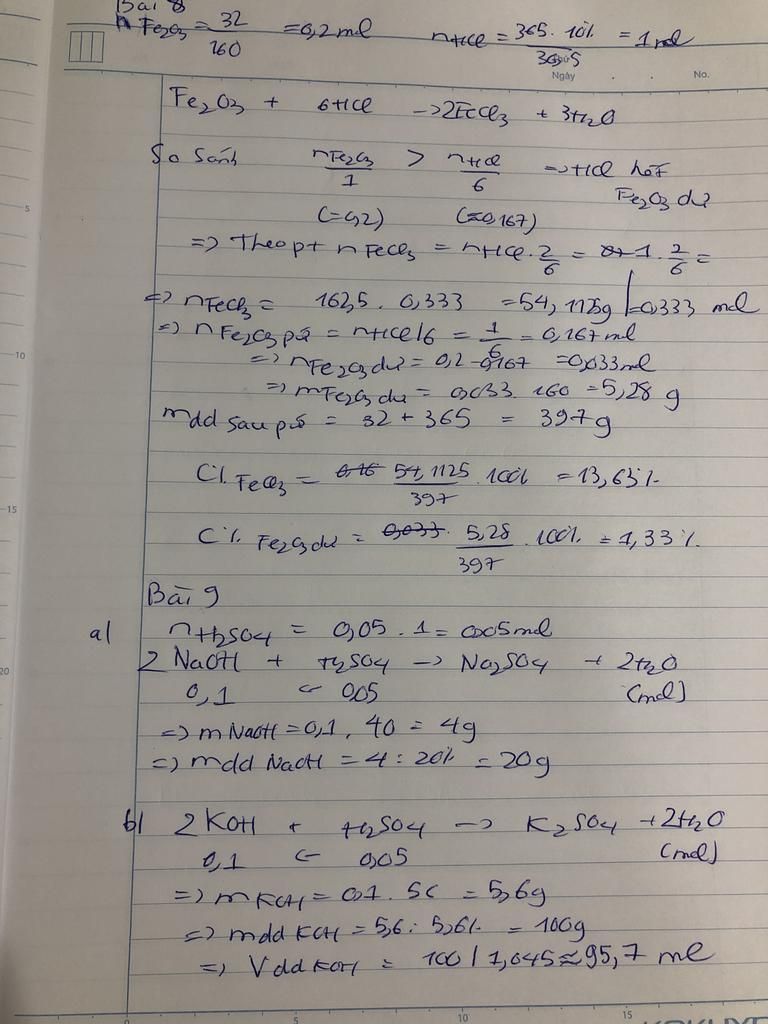 Bài 8
nFe2O3 = 32/160 = 0,2 mol nHCl = 365.10%/36,5 = 1 mol
Ngày . . No.
Fe2O3 + 6HCl → 2FeCl3 + 3H2O
So sánh nFe2O3/1 > nHCl/6 => HCl hết
Fe2O3 dư
(=0,2) (=0,167)
=> Theo pt nFeCl3 = nHCl.2/6 = 1.2/6 =
=> nFeCl3 = 162,5 . 0,333 = 54,1125g | =0,333 mol
=> nFe2O3 pứ = nHCl/6 = 1/6 = 0,167 mol
=> nFe2O3 dư = 0,2-0,167 = 0,033 mol
=> mFe2O3 dư = 0,033.160 = 5,28 g
mdd sau pứ = 32 + 365 = 397 g
C% FeCl3 = 54,1125/397 .100% = 13,63%
C% Fe2O3 dư = 5,28/397 .100% = 1,33%
Bài 9
a/ nH2SO4 = 0,05 . 1 = 0,05 mol
2NaOH + H2SO4 → Na2SO4 + 2H2O
0,1 ← 0,05 (mol)
=> mNaOH = 0,1 . 40 = 4g
=> mdd NaOH = 4 : 20% = 20g
b/ 2KOH + H2SO4 → K2SO4 + 2H2O
0,1 ← 0,05 (mol)
=> mKOH = 0,1 . 56 = 5,6g
=> mdd KOH = 5,6 : 5,6% = 100g
=> Vdd KOH = 100/1,045 ≈ 95,7 ml
5
10
15
20
0 5 10 15
KOKUYO